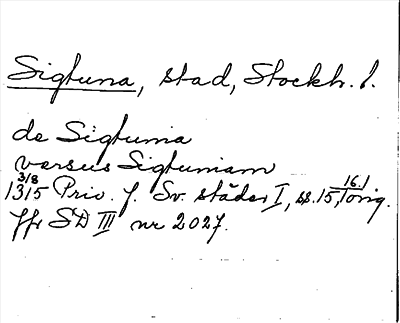 Sigtuna, stad, Stockh. l.
de Sigtunia
versus Sigtuniam
3/8 16.1
1315 Priv. f. Sv. städer I, s. 15, orig.
Jfr SD III nr 2027.